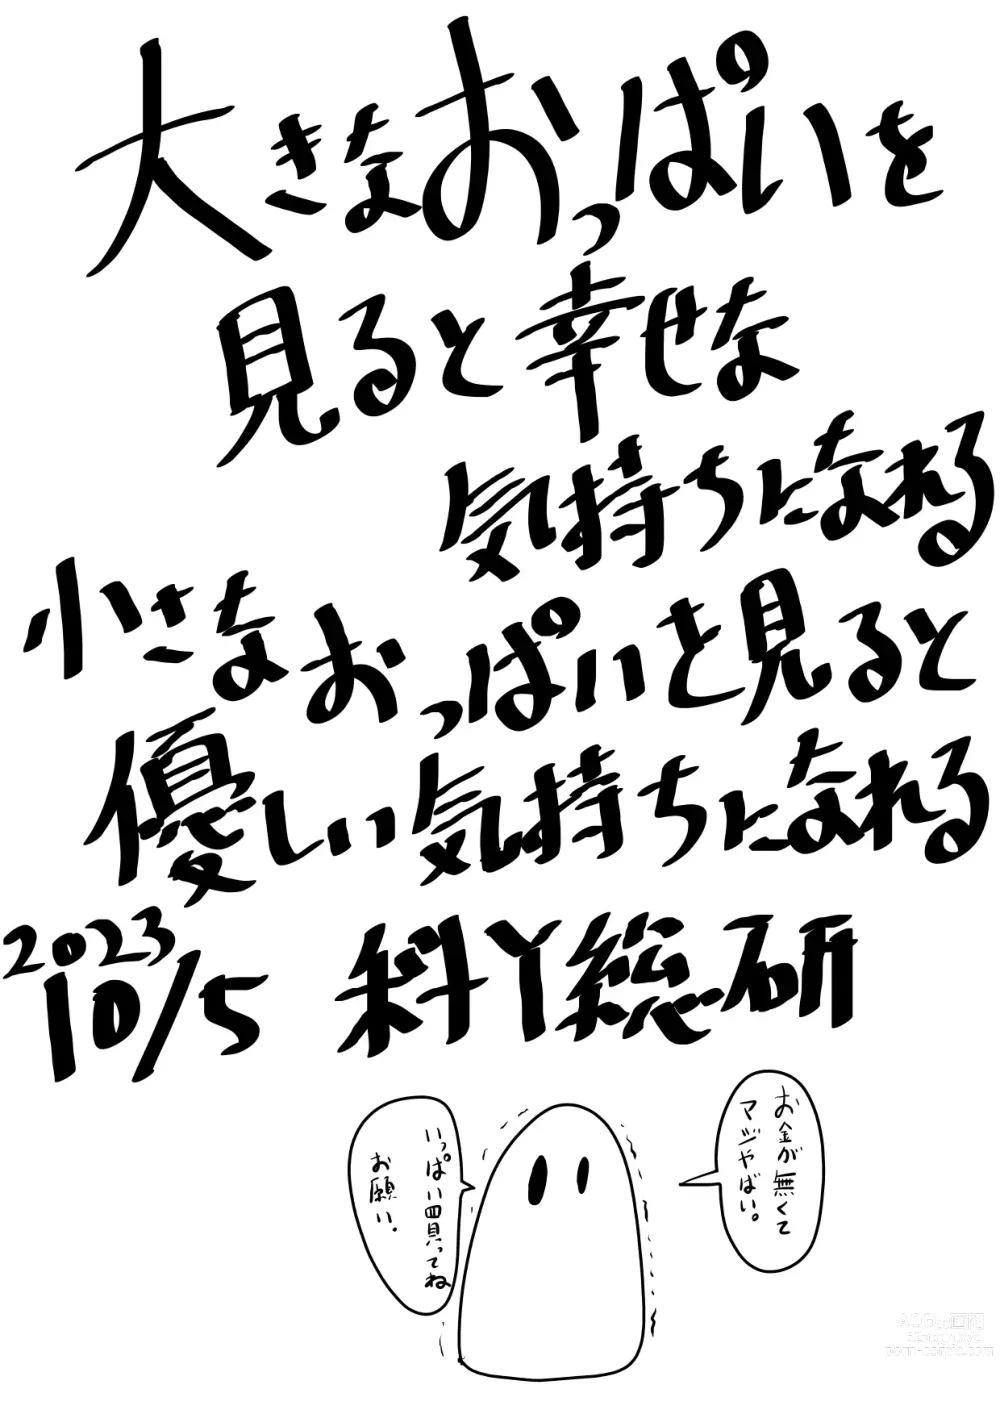 大きなおっぱいを
見ると幸せな
気持ちになれる
小さなおっぱいを見ると
優しい気持ちになれる
2023
10/5 科丫総研
お金が無くて
マジやばい。
いっぱい買ってね
お願い。